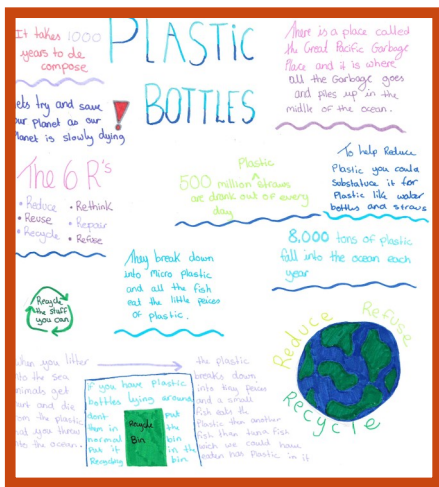 It takes 1000
years to de
compose
PLASTIC
BOTTLES
There is a place called
the Great Pacific Garbage
Place and it is where
all the Garbage goes
and piles up in the
midlle of the ocean.
lets try and save
our planet as our
Planet is slowly dying
!
The 6 R's
• Reduce • Rethink
• Reuse • Repair
• Recycle • Refuse
Plastic
500 million ^ straws
are drank out of every
day
To help Reduce
Plastic you could
Substatuce it for
Plastic like water
bottles and straws
8,000 tons of plastic
fall into the ocean each
year
They break down
into micro plastic
and all the fish
eat the little peices
of plastic.
Recycle
the stuff
you can
Reduce
Refuse
Recycle
when you litter
into the sea
animals get
hurt and die
from the plastic
you threw
into the ocean.
if you have plastic
bottles lying around
dont put
them in the
normal bin
Put it in the
Recycling bin
Recycle
Bin
the plastic
breaks down
into tiny peices
and a small
fish eats the
Plastic then another
fish then tuna fish
wich we could have
eaten has Plastic in it